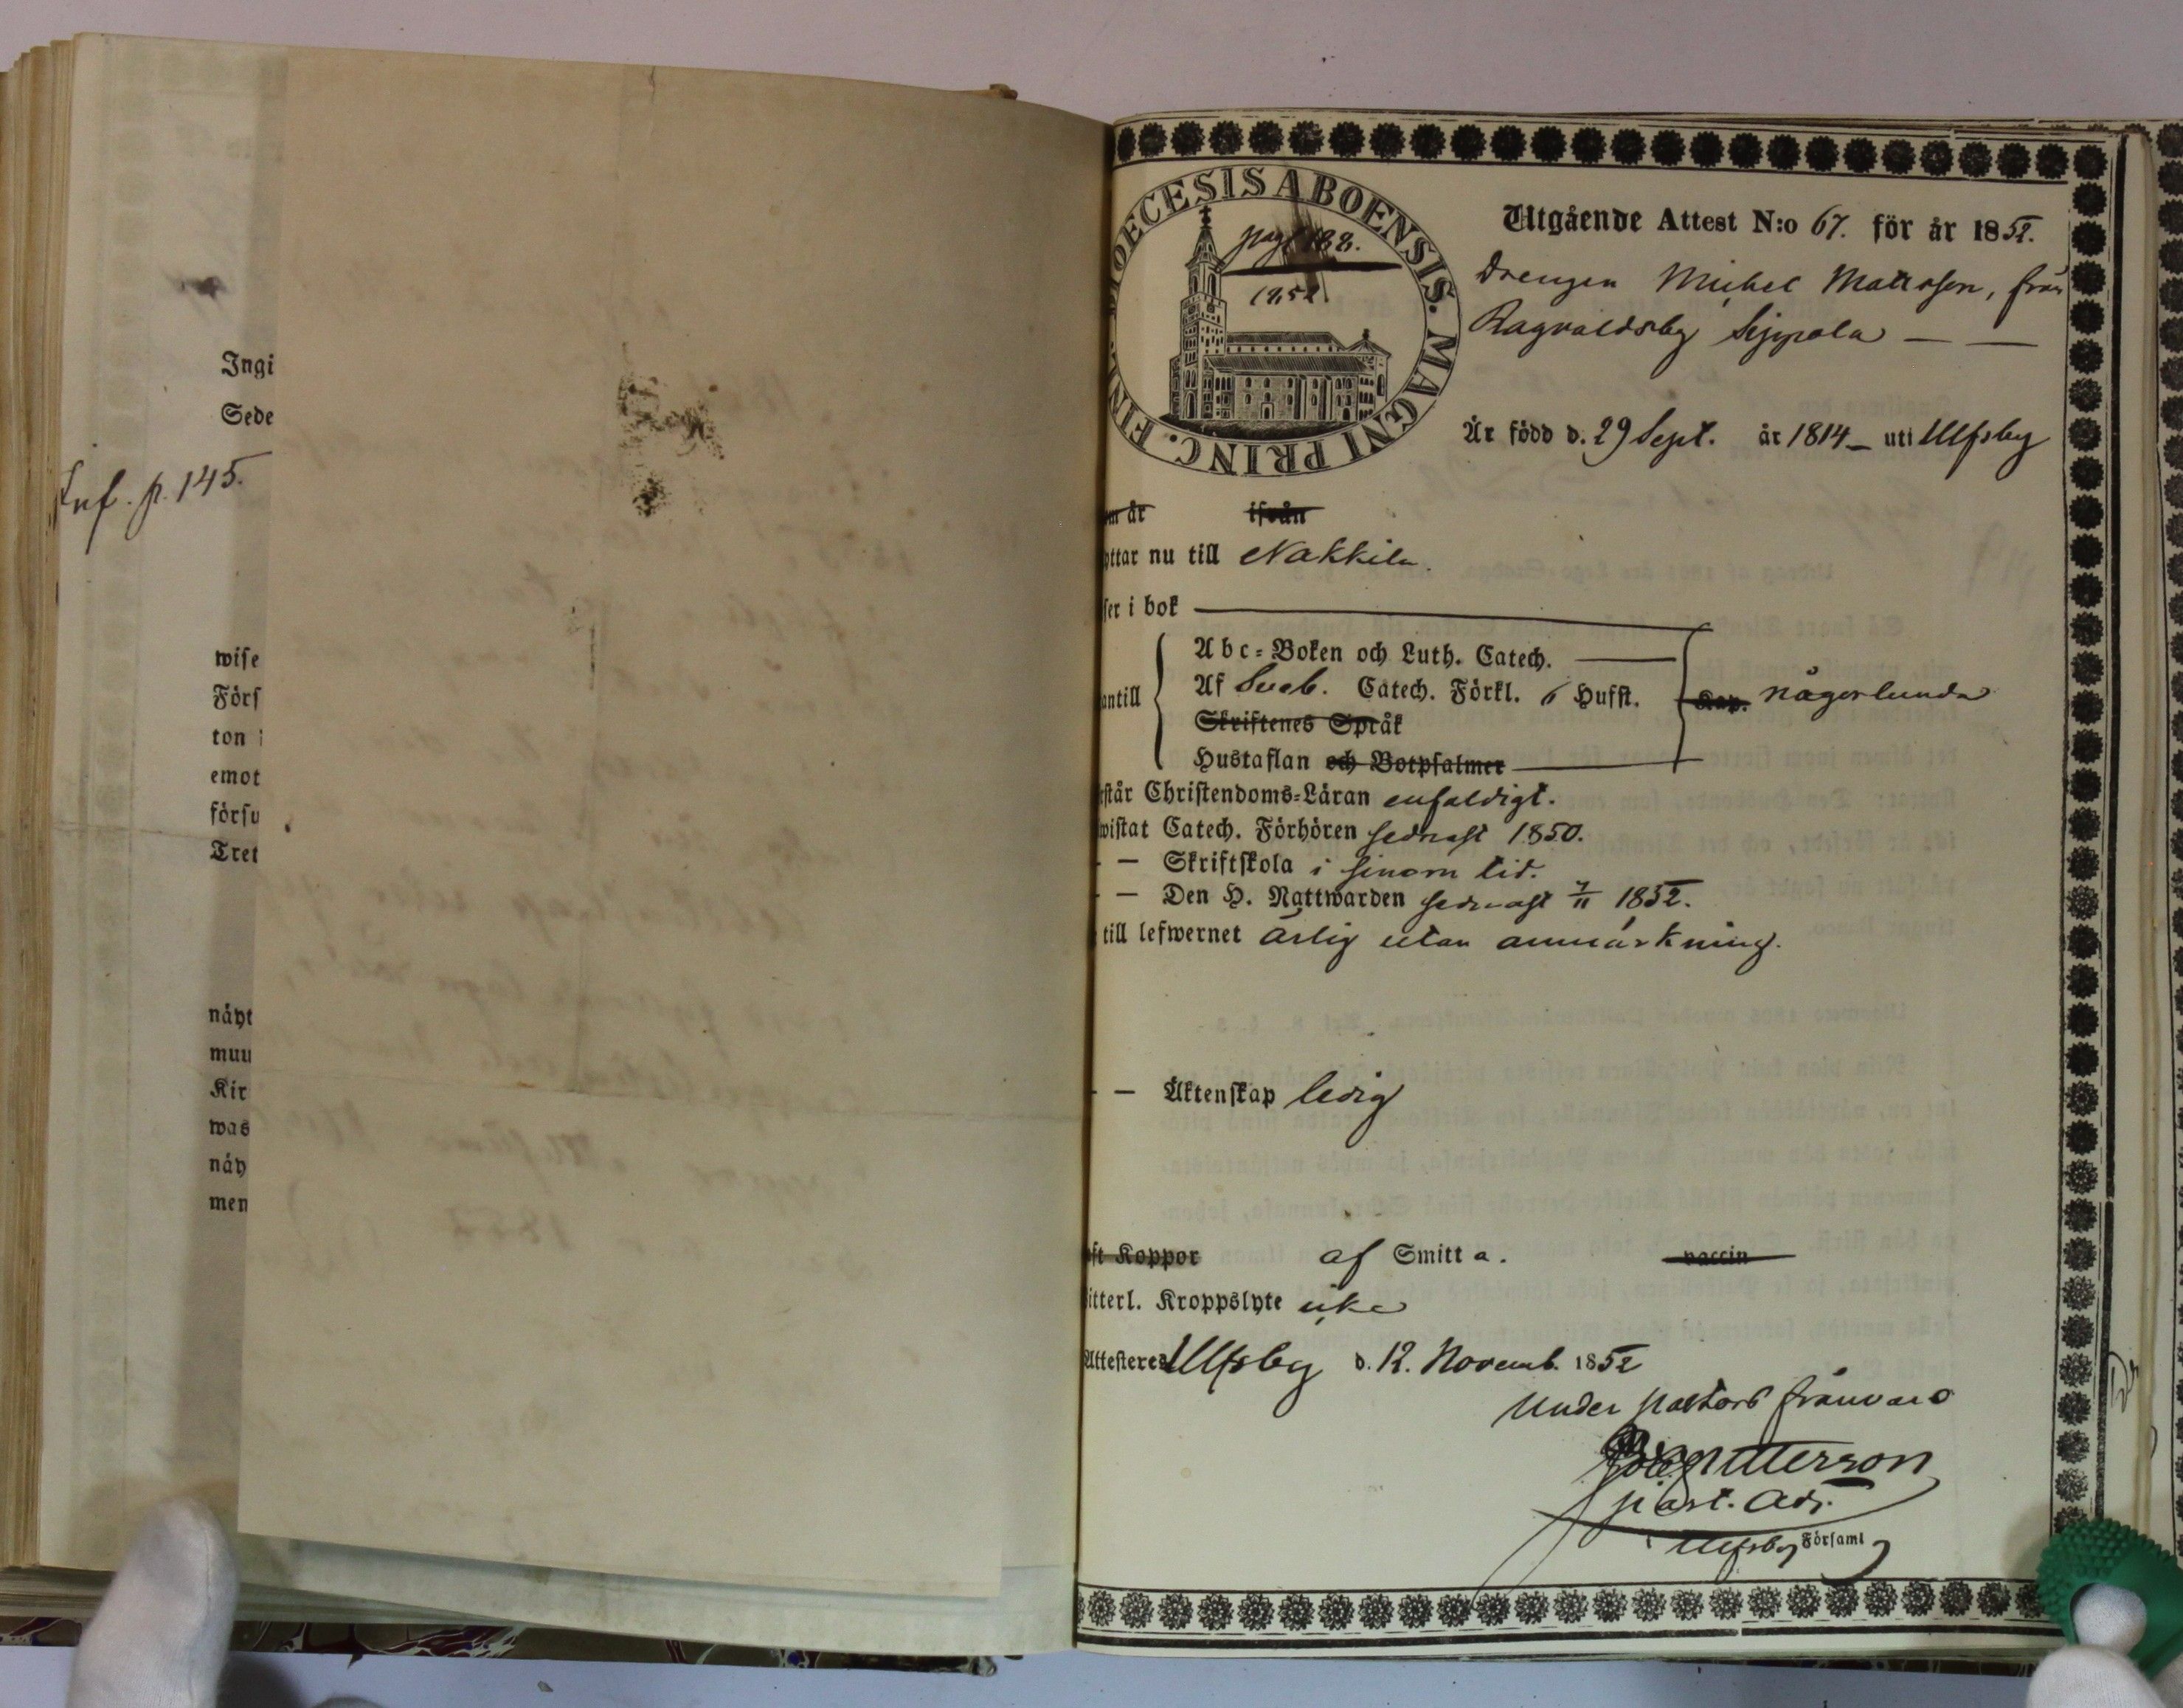 Ingi
Sede
Inf. p. 145.
wise
Förs
ton
emot
försu
Tret
näyt
muu
Kir
was
näy
men
DIOECESIS ABOENSIS. MAGNI PRINC. FIN
pag 188.
1852
Utgående Attest N:o 67. för år 1852.
Drengen Michel Mattsson, från
Ragvaldsby Seppola
Är född d. 29 Sept. år 1814 uti Ulfsby
m år ifrån
yttar nu till Nakkila.
ser i bok
Abc-Boken och Luth. Catech.
antill Af Sveb. Catech. Förkl. 6 Hufst. Kap. någorlunda
Skriftenes Språk
Hustaflan och Botpsalmer
står Christendoms-Läran enfaldigt.
wistat Catech. Förhören sednast 1850.
— — Skriftskola i sinom tid.
— — Den H. Nattwarden sednast 7/11 1852.
till lefwernet ärlig utan anmärkning.
— — Äktenskap ledig
ft Koppor af Smitta. vaccin
itterl. Kroppslyte icke
Attesteres Ulfsby d. 12. Novemb. 1852
Under Pastors frånvaro
past. Adj.
Ulfsby Församl